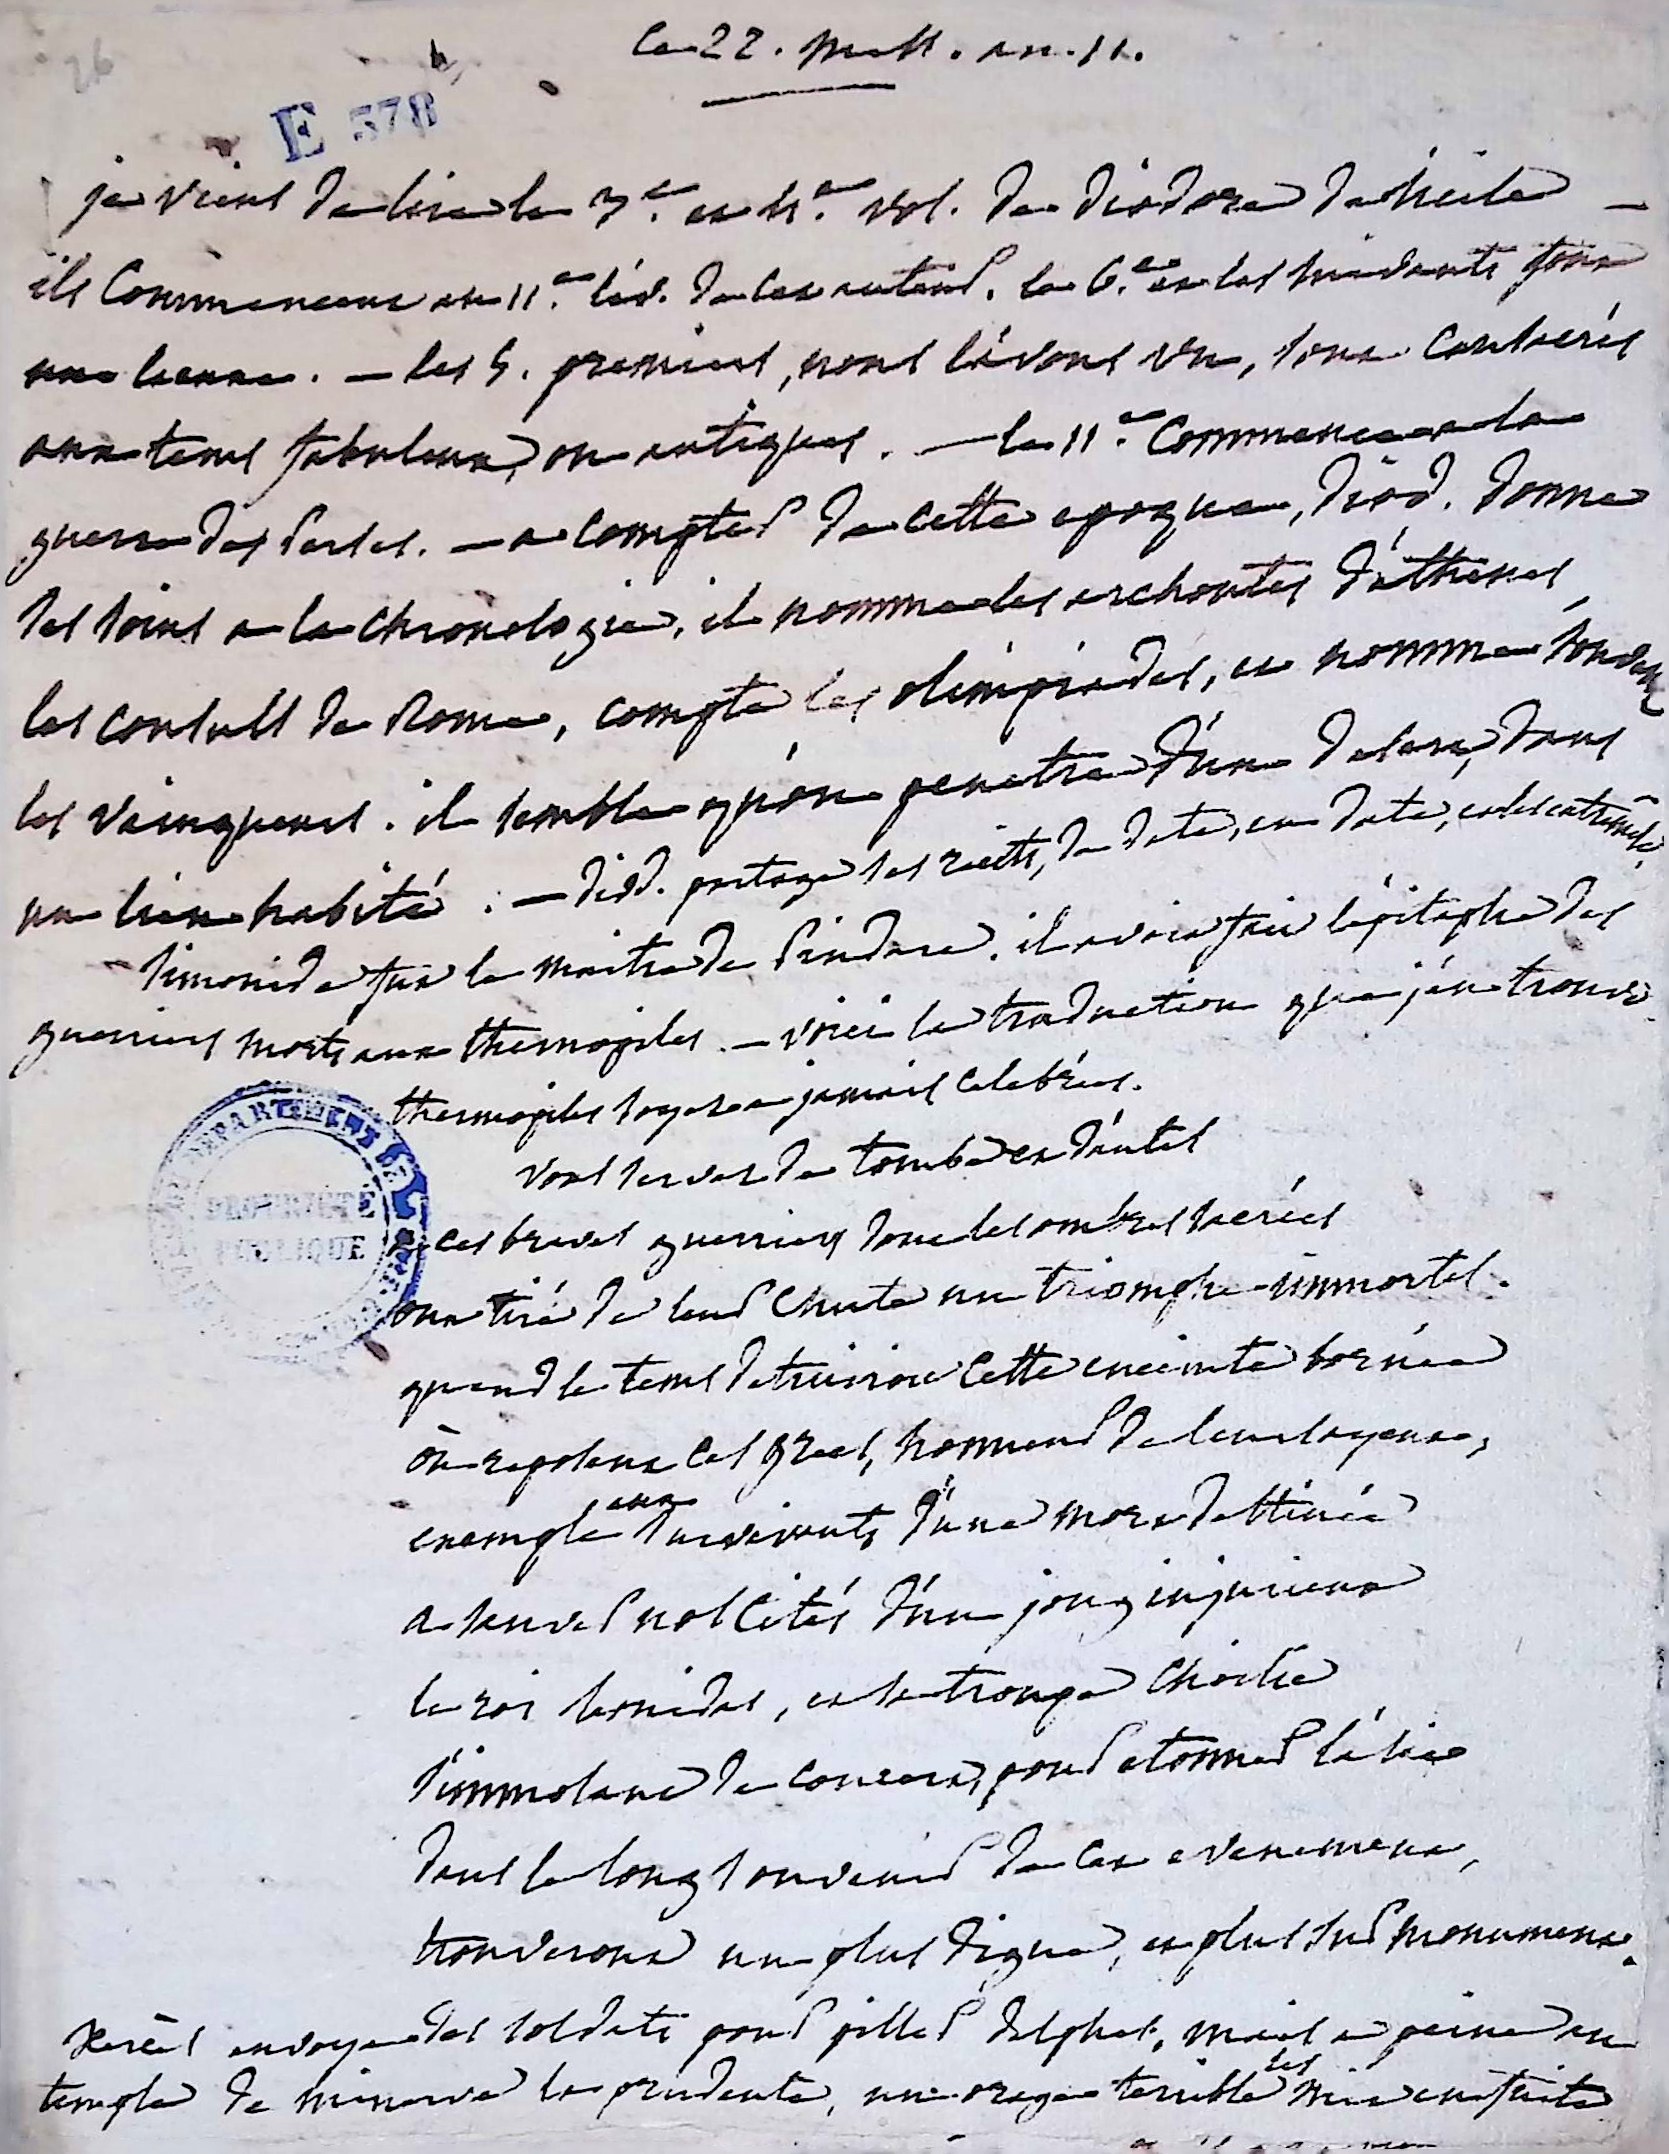 26
le 22. mess. an. 11.
E 378
je viens de lire le 3.e et 4.e vol. de diodore de sicile —
ils commencent au 11.e liv. de cet auteur. le 6.e et les suivants sont
— les 5. premiers, nous l'avons vu, sont consacrés
aux tems fabuleux, ou antiques. — le 11.e commence a la
guerre des Perses. — a compter de cette epoque, diod. donne
ses soins a la chronologie. il nomme les archontes d'athenes,
les consuls de Rome, compte les olimpiades, et nomme souvent
les vainqueurs. il semble qu'on penetre d'un desert, dans
un lieu habité. — diod. partage ses recits, de date, en date, et les entremêle.
simonide fut le maitre de Pindare. il avoit fait l'épitaphe des
guerriers morts aux thermopiles. — voici la traduction que j'en trouve.
thermopiles soyez a jamais celebrées.
vous servez de tombe et d'autel
a ces braves guerriers dont les ombres sacrées
ont tiré de leur chute un triomphe immortel.
quand le tems detruiroit cette enceinte bornée
où reposent ces grecs, honneur de leurs ayeux,
exemple aux survivants d'une mort destinée
a sauver nos cités d'un joug injurieux
le roi leonidas, et sa troupe choisie
s'immolant de concert, pour etonner l'asie
dans le long souvenir de cet evenement,
trouveront un plus digne, et plus sur monument.
Xercès envoya des soldats pour piller delphes, mais a peine au
temple de minerve la prudente, un orage terrible les mit en fuite
DEPARTEMENT DE
PROPRIÉTÉ
PUBLIQUE